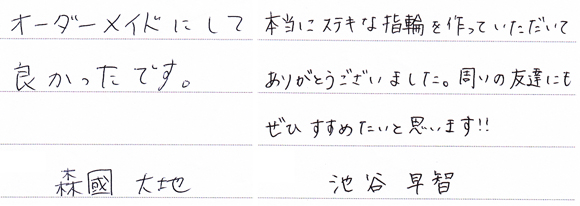 オーダーメイドにして
良かったです。
森國 大地
本当にステキな指輪を作っていただいて
ありがとうございました。周りの友達にも
ぜひすすめたいと思います!!
池谷 早智